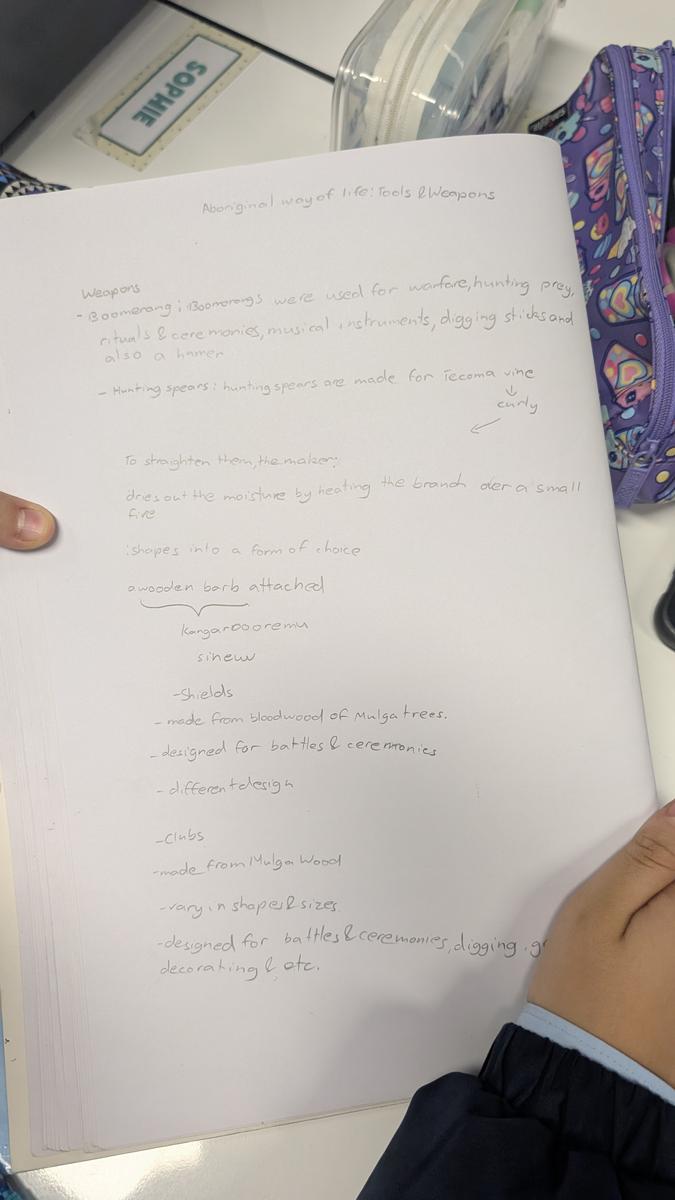 SOPHIE
Aboriginal way of life: Tools & Weapons
Weapons
- Boomerang: Boomerangs were used for warfare, hunting prey,
rituals & ceremonies, musical instruments, digging sticks and
also a hamer
- Hunting spears: hunting spears are made for Tecoma vine
curly
To straighten them, the maker:
dries out the moisture by heating the branch over a small
fire
: shapes into a form of choice
a wooden barb attached
kangaroo or emu
sinew
- Shields
- made from bloodwood of Mulga trees.
- designed for battles & ceremonies
- different design
- Clubs
- made from Mulga Wood
- vary in shapes & sizes
- designed for battles & ceremonies, digging,
decorating & etc.